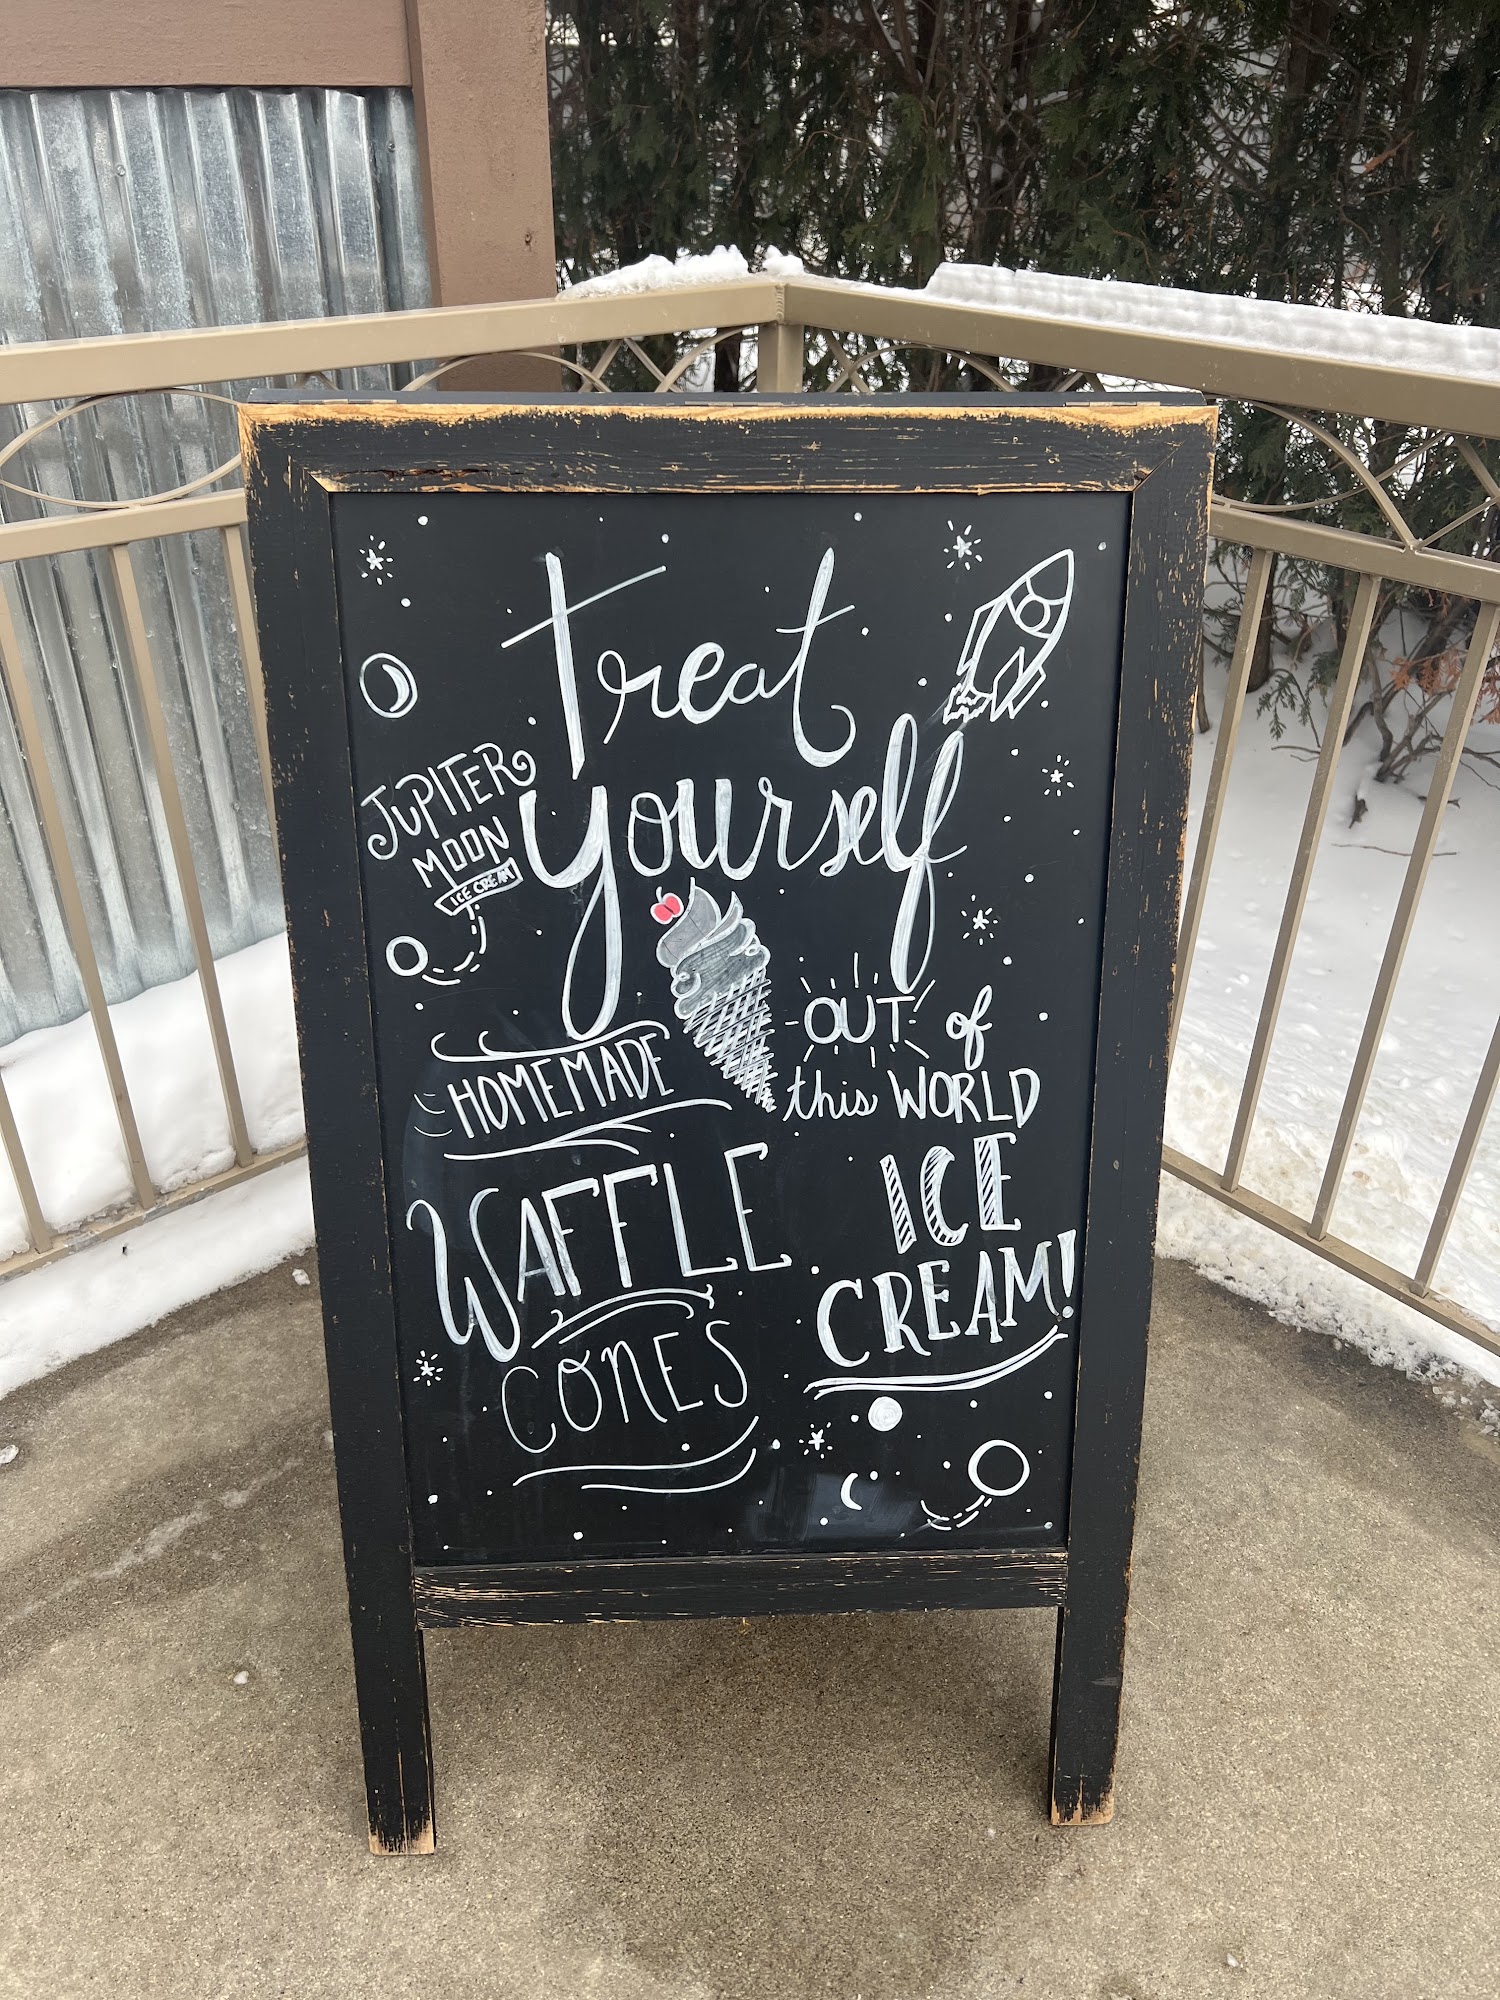 treat
yourself
JUPITER
MOON
ICE CREAM
HOMEMADE
WAFFLE
CONES
OUT of
this WORLD
ICE
CREAM!